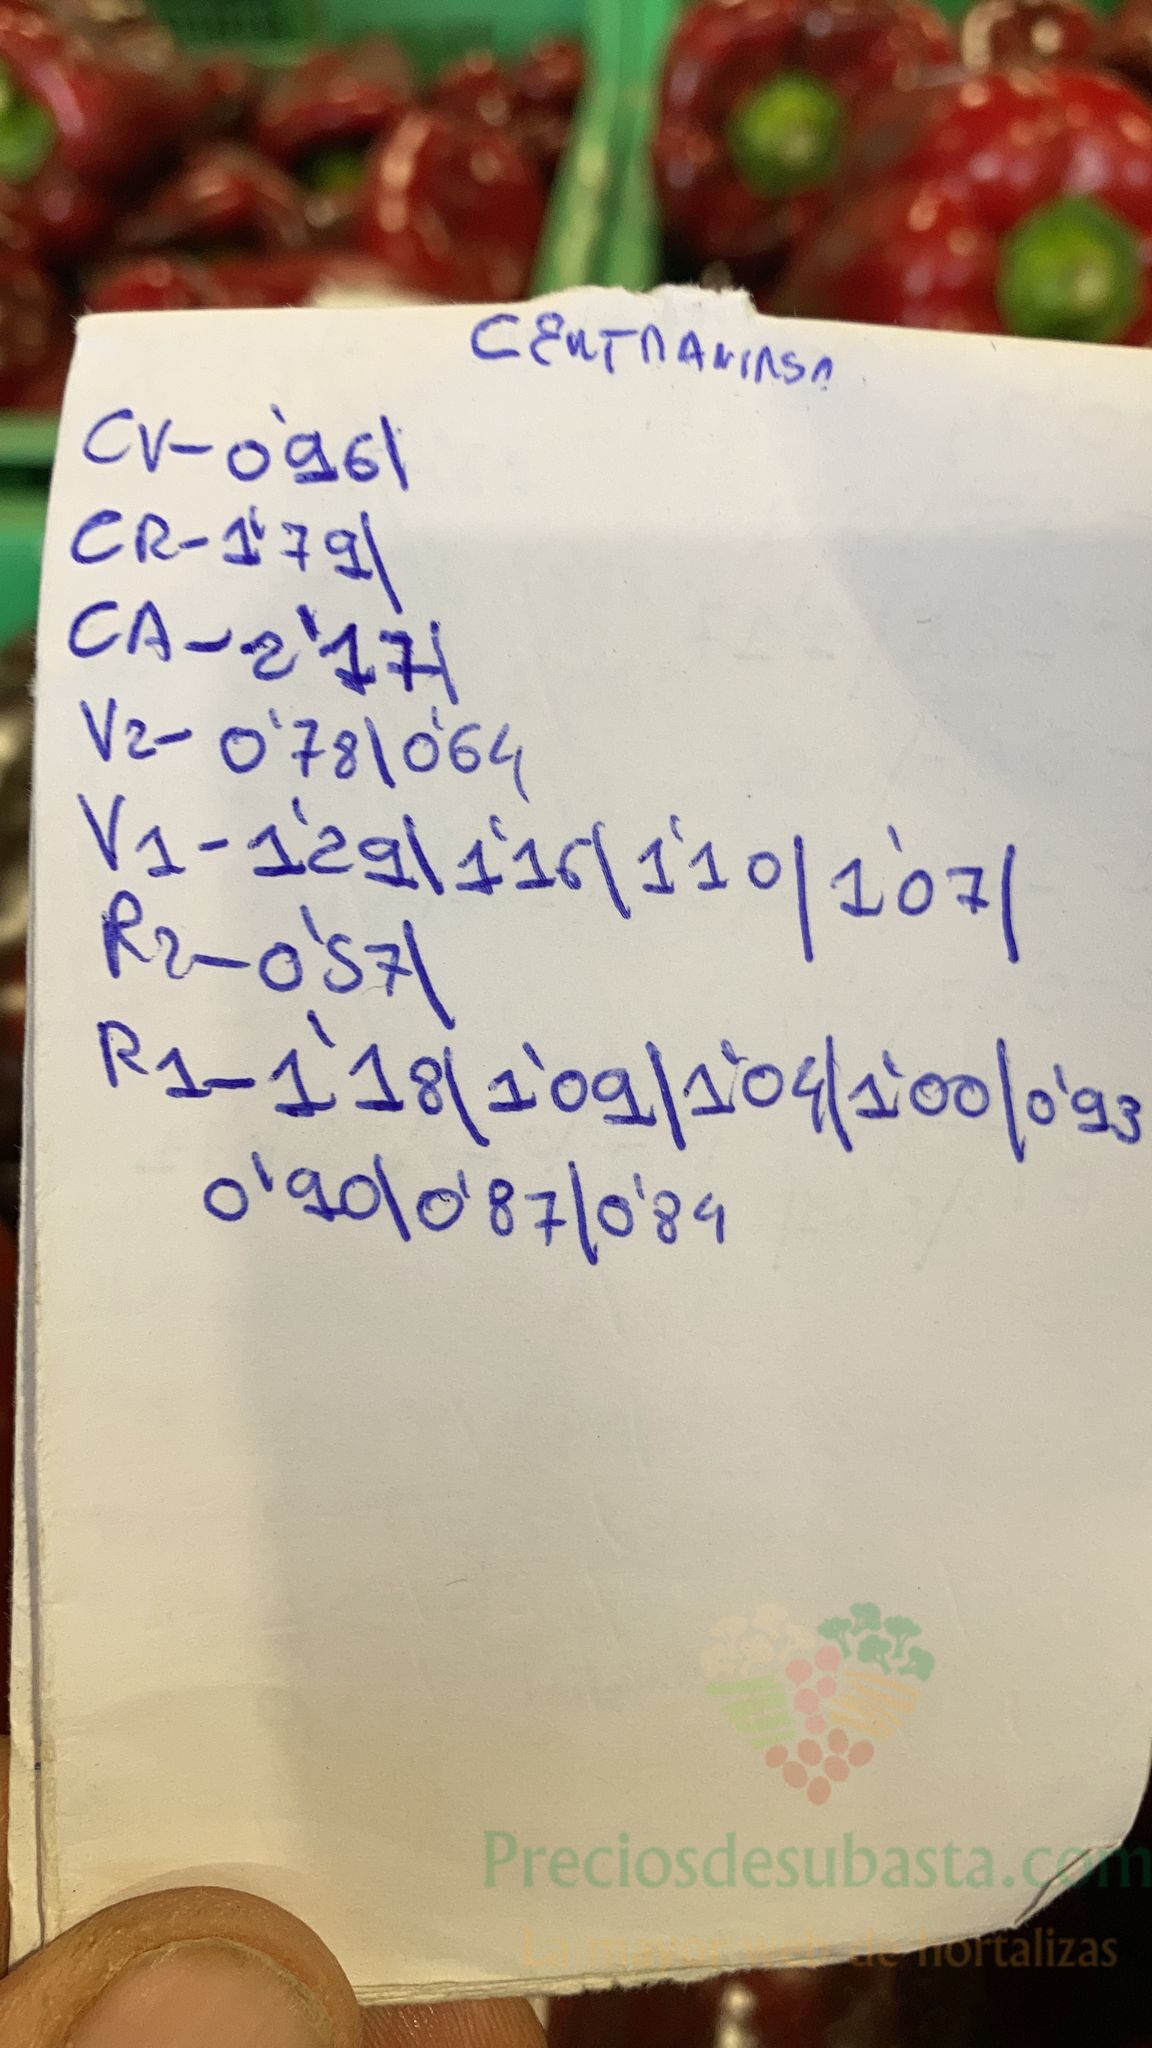 CENTRAMIRSA
CV-0'96|
CR-1'79|
CA-2'17|
V2-0'78|0'64
V1-1'29|1'16|1'10|1'07|
R2-0'57|
R1-1'18|1'09|1'04|1'00|0'93
0'90|0'87|0'84
Preciosdesubasta.com
La mayor web de hortalizas